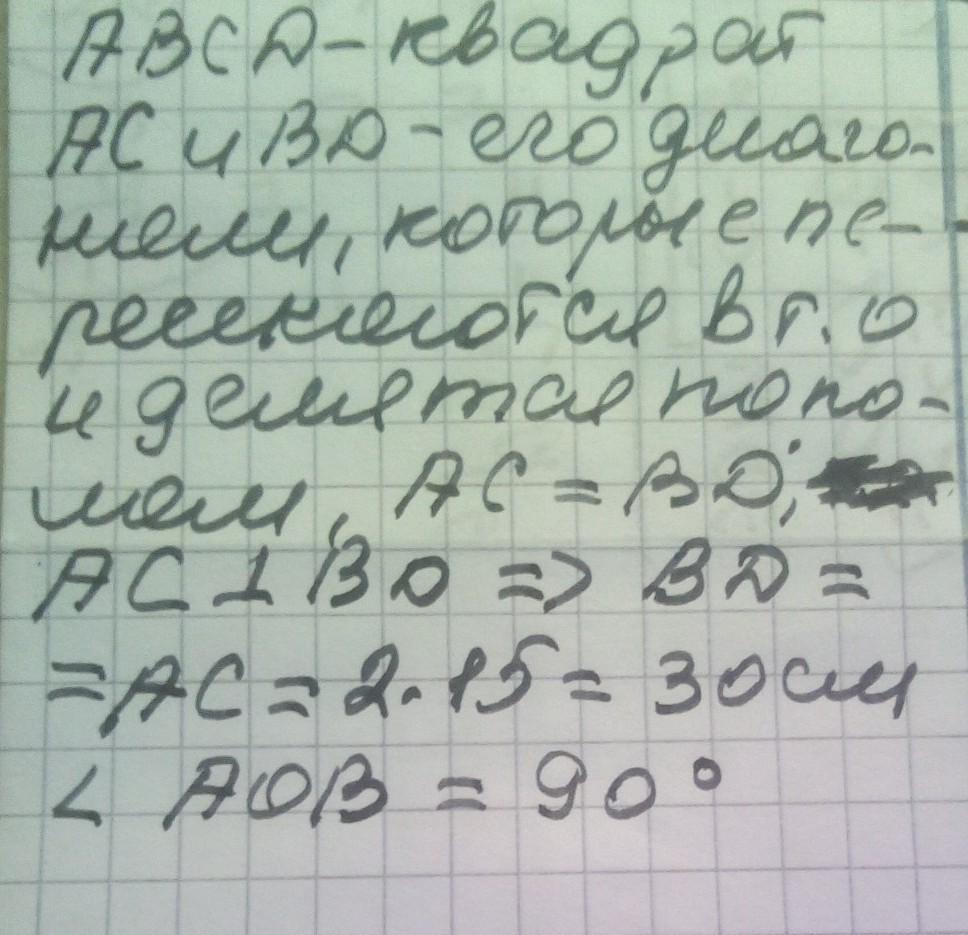 ABCD - квадрат
AC и BD - его диаго-
нали, которые пе-
ресекаются в т. О
и делятся попо-
лам, AC = BD;
AC ⊥ BD => BD =
= AC = 2·15 = 30 см
∠ AOB = 90°